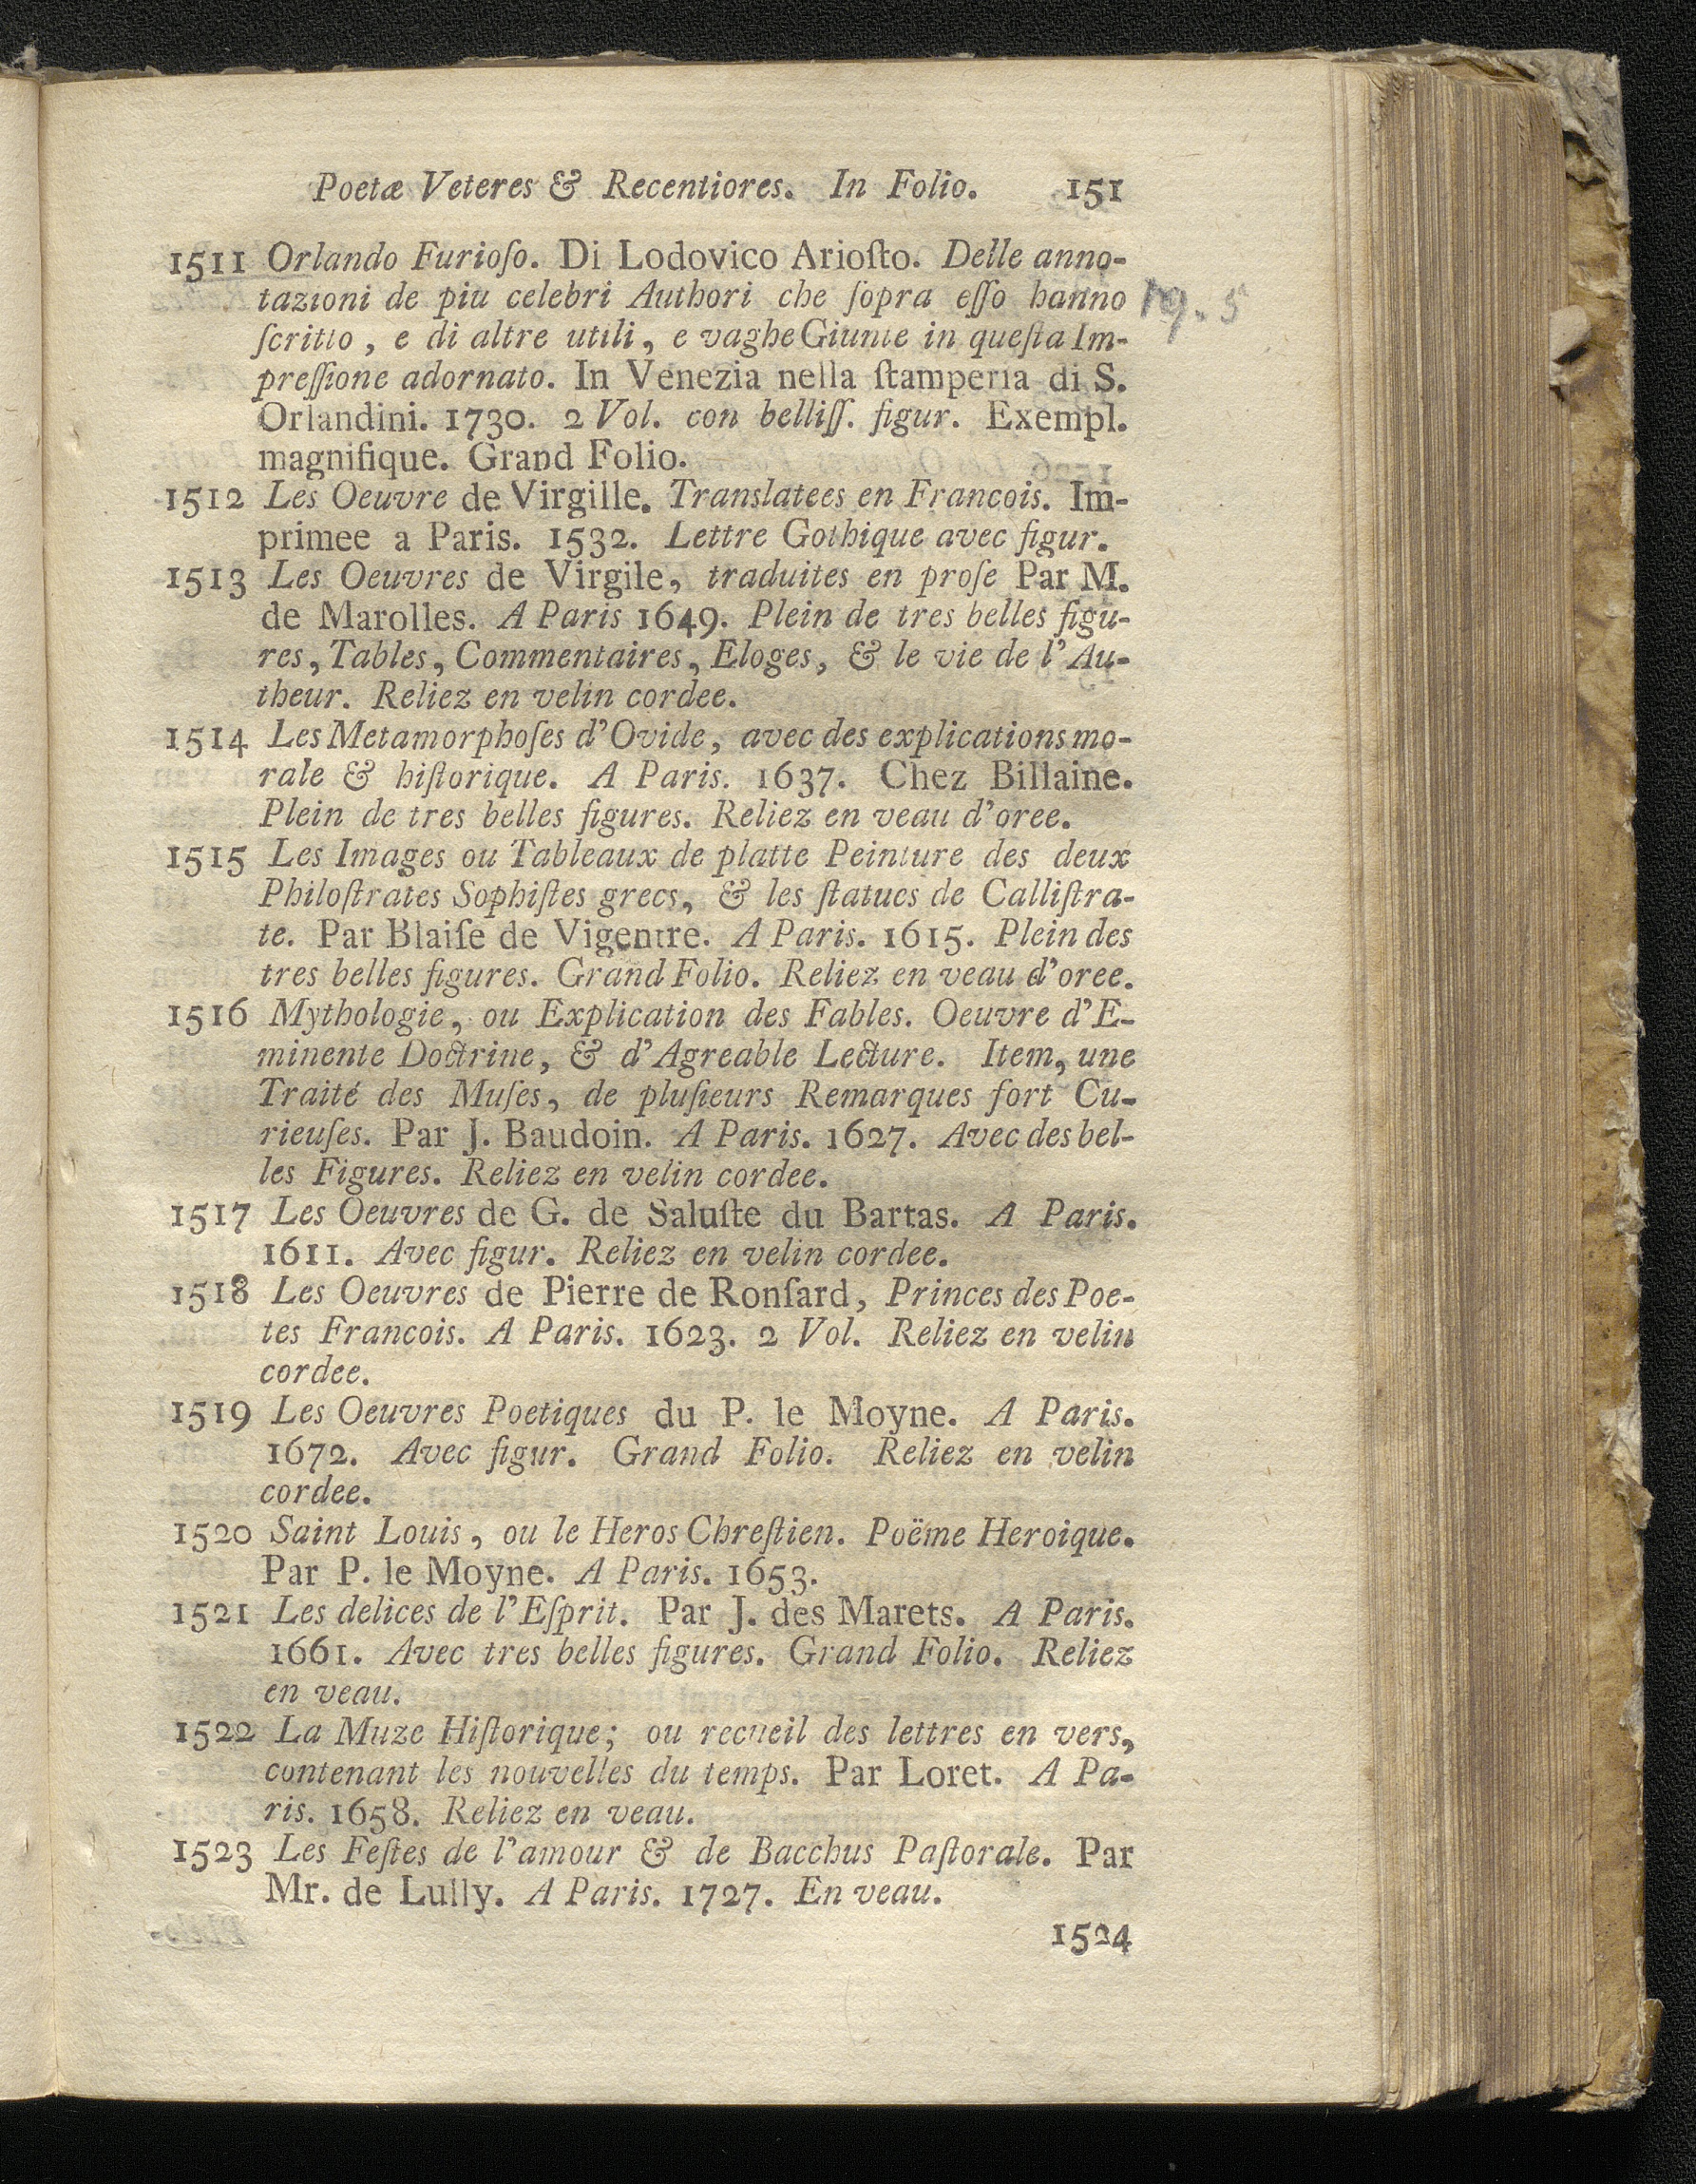 Poetæ Veteres & Recentiores. In Folio. 151
1511 Orlando Furioſo. Di Lodovico Arioſto. Delle anno-
tazioni de piu celebri Authori che ſopra eſſo hanno 19.5
ſcritto, e di altre utili, e vaghe Giunte in queſta Im-
preſſione adornato. In Venezia nella ſtamperia di S.
Orlandini. 1730. 2 Vol. con belliſſ. figur. Exempl.
magnifique. Grand Folio.
1512 Les Oeuvre de Virgille. Translatees en Francois. Im-
primee a Paris. 1532. Lettre Gothique avec figur.
1513 Les Oeuvres de Virgile, traduites en proſe Par M.
de Marolles. A Paris 1649. Plein de tres belles figu-
res, Tables, Commentaires, Eloges, & le vie de l'Au-
theur. Reliez en velin cordee.
1514 Les Metamorphoſes d'Ovide, avec des explications mo-
rale & hiſtorique. A Paris. 1637. Chez Billaine.
Plein de tres belles figures. Reliez en veau d'oree.
1515 Les Images ou Tableaux de platte Peinture des deux
Philoſtrates Sophiſtes grecs, & les ſtatues de Calliſtra-
te. Par Blaiſe de Vigentre. A Paris. 1615. Plein des
tres belles figures. Grand Folio. Reliez en veau d'oree.
1516 Mythologie, ou Explication des Fables. Oeuvre d'E-
minente Doctrine, & d'Agreable Lecture. Item, une
Traité des Muſes, de pluſieurs Remarques fort Cu-
rieuſes. Par J. Baudoin. A Paris. 1627. Avec des bel-
les Figures. Reliez en velin cordee.
1517 Les Oeuvres de G. de Saluſte du Bartas. A Paris.
1611. Avec figur. Reliez en velin cordee.
1518 Les Oeuvres de Pierre de Ronſard, Princes des Poe-
tes Francois. A Paris. 1623. 2 Vol. Reliez en velin
cordee.
1519 Les Oeuvres Poetiques du P. le Moyne. A Paris.
1672. Avec figur. Grand Folio. Reliez en velin
cordee.
1520 Saint Louis, ou le Heros Chreſtien. Poëme Heroique.
Par P. le Moyne. A Paris. 1653.
1521 Les delices de l'Eſprit. Par J. des Marets. A Paris.
1661. Avec tres belles figures. Grand Folio. Reliez
en veau.
1522 La Muze Hiſtorique; ou recueil des lettres en vers,
contenant les nouvelles du temps. Par Loret. A Pa-
ris. 1658. Reliez en veau.
1523 Les Feſtes de l'amour & de Bacchus Paſtorale. Par
Mr. de Lully. A Paris. 1727. En veau.
1524